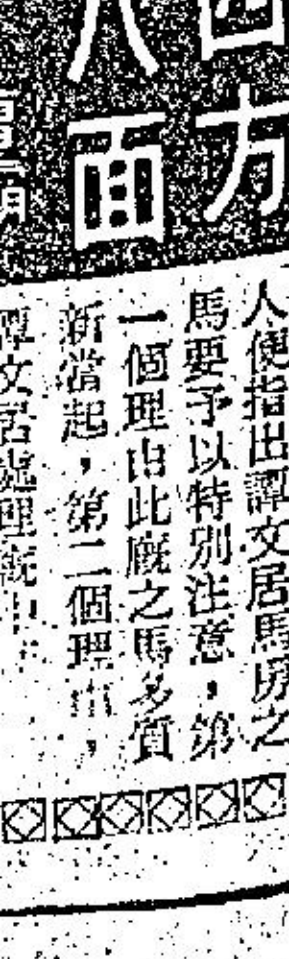 四方
八面
人便指出譚文居馬房之
馬要予以特別注意，第
一個理由此廐之馬多質
新當起，第二個理由，
譚文居處理廐